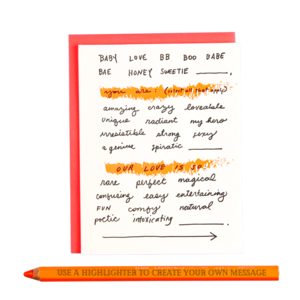 BABY LOVE BB BOO BABE
BAE HONEY SWEETIE ______.
you are: (select all that apply)
amazing crazy loveable
unique radiant my hero
irresistible strong sexy
a genius ______
OUR LOVE IS
rare perfect magical
confusing easy entertaining
FUN comfy natural
poetic intoxicating ______.
USE A HIGHLIGHTER TO CREATE YOUR OWN MESSAGE